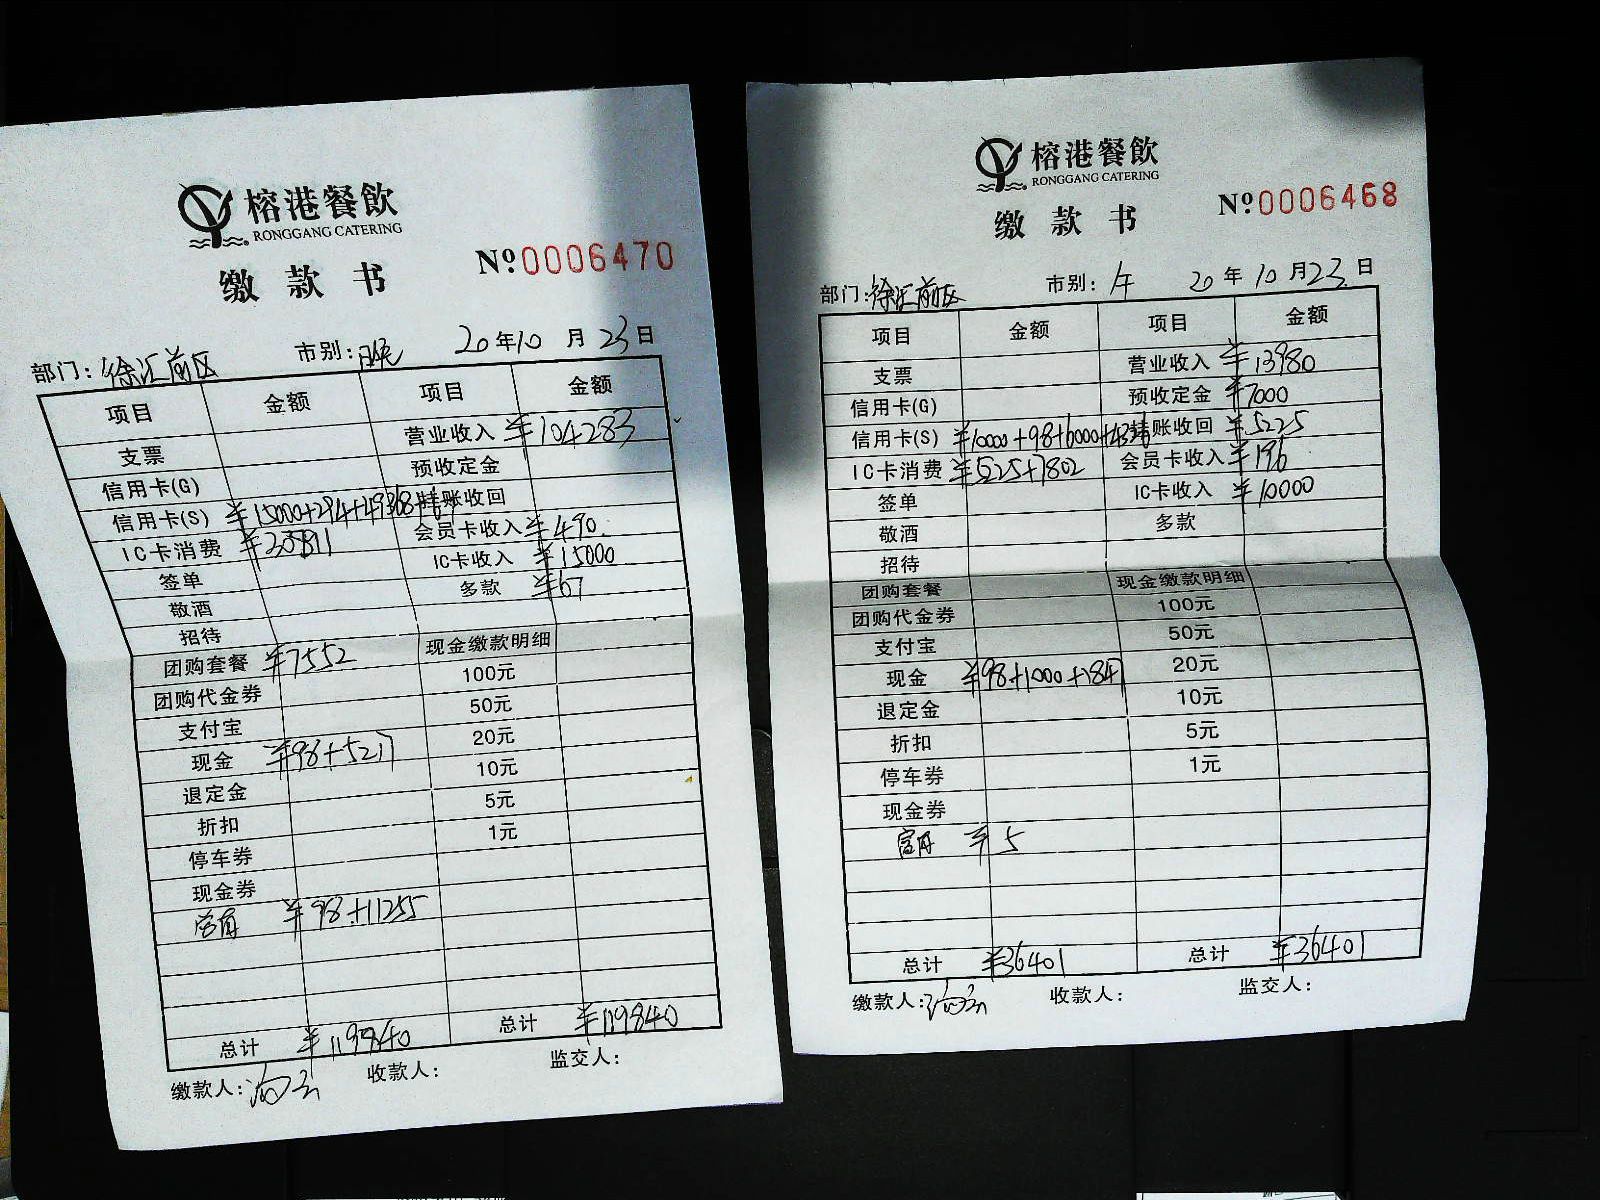 榕港餐飲
RONGGANG CATERING
缴款书
Nº0006470
部门: 徐汇前区 市别: 晚 20年10月23日
项目 金额 项目 金额
支票 营业收入 ¥104283
信用卡(G) 预收定金
信用卡(S) ¥15000+294+49368 挂账收回
IC卡消费 会员卡收入 ¥490
签单 IC卡收入 ¥15000
敬酒 多款 ¥67
招待
团购套餐 ¥7552 现金缴款明细
团购代金券 100元
支付宝 50元
现金 ¥98+5217 20元
退定金 10元
折扣 5元
停车券 1元
现金券
¥98+11255
总计 ¥119840 总计 ¥119840
缴款人: 收款人: 监交人:
榕港餐飲
RONGGANG CATERING
缴款书
Nº0006468
部门: 徐汇前区 市别: 午 20年10月23日
项目 金额 项目 金额
支票 营业收入 ¥13980
信用卡(G) 预收定金 ¥7000
信用卡(S) ¥10000+98+6000+4336 挂账收回 ¥5225
IC卡消费 ¥5225+7802 会员卡收入 ¥196
签单 IC卡收入 ¥10000
敬酒 多款
招待
团购套餐 现金缴款明细
团购代金券 100元
支付宝 50元
现金 ¥98+1000+1847 20元
退定金 10元
折扣 5元
停车券 1元
现金券
¥5
总计 ¥36401 总计 ¥36401
缴款人: 收款人: 监交人: